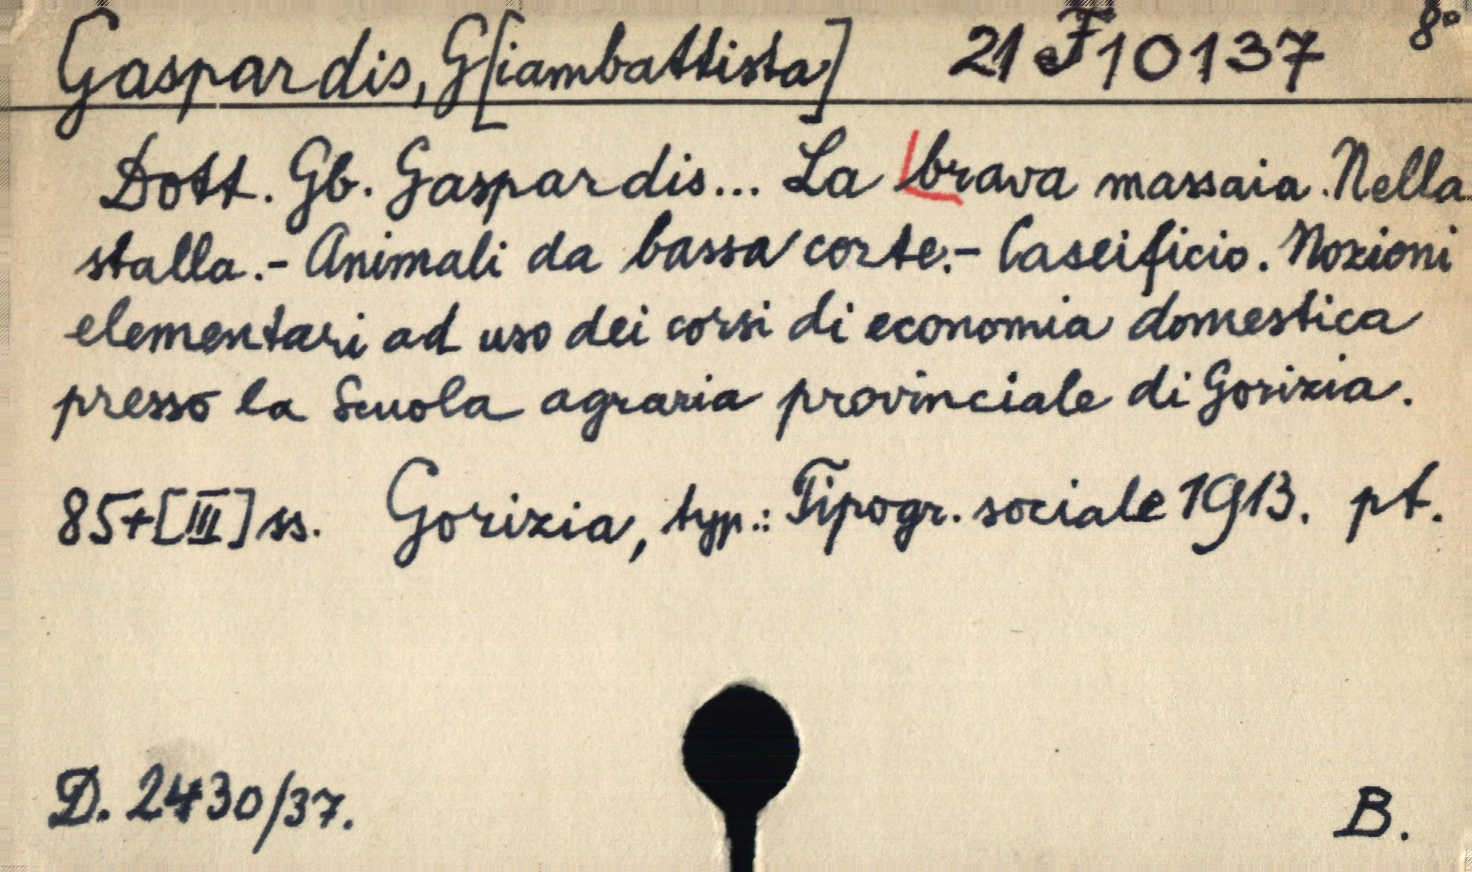 Gaspardis, G[iambattista] 21 F 10137 8°
Dott. Gb. Gaspardis... La brava massaia. Nella
stalla.- Animali da bassa corte.- Caseificio. Nozioni
elementari ad uso dei corsi di economia domestica
presso la Scuola agraria provinciale di Gorizia.
85+[III] ss. Gorizia, typ.: Tipogr. sociale 1913. pt.
D. 2430/37. B.